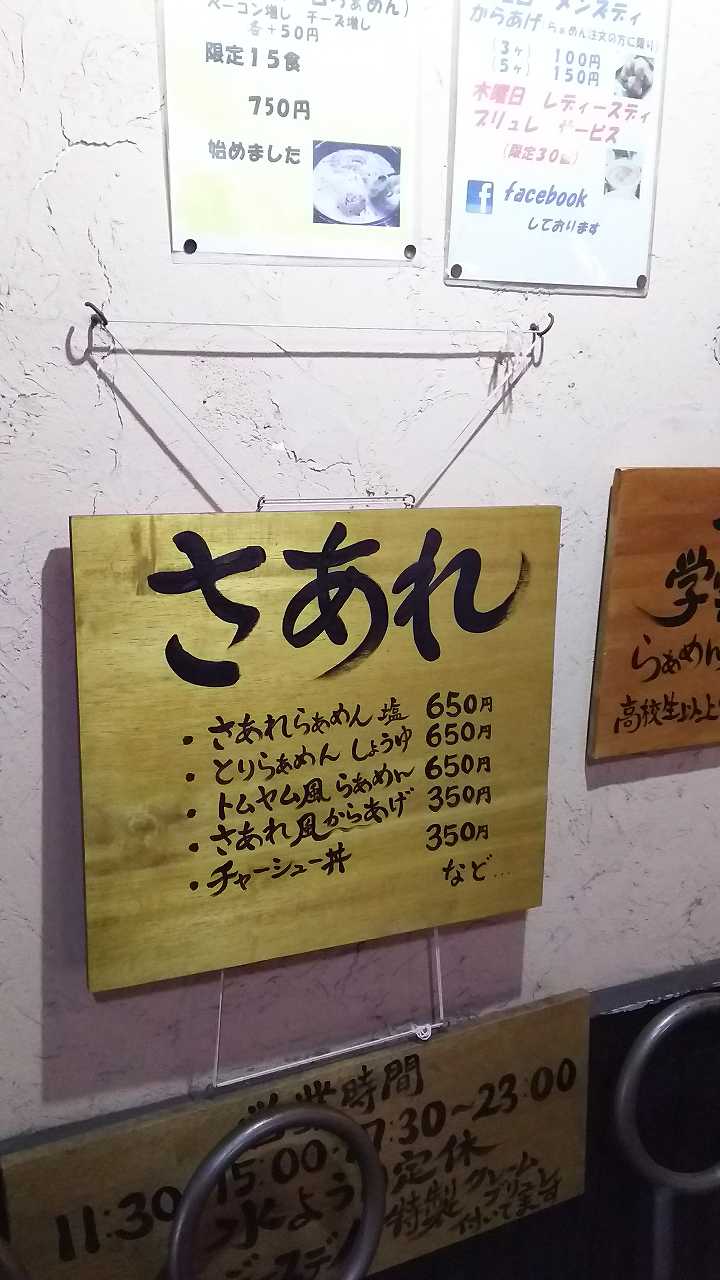 らぁめん)
ベーコン増し チーズ増し
各+50円
限定15食
750円
始めました
メンズディ
からあげ らぁめん注文の方に限り
(3ヶ) 100円
(5ヶ) 150円
木曜日 レディースディ
ブリュレ サービス
(限定30名)
facebook
しております
さあれ
・さあれらぁめん 塩 650円
・とりらぁめん しょうゆ 650円
・トムヤム風 らぁめん 650円
・さあれ風からあげ 350円
・チャーシュー丼 350円
など...
学
らぁめん
高校生以上
営業時間
11:30 15:00 17:30~23:00
水よう 定休
特製クレーム
ブリュレ
付いてます